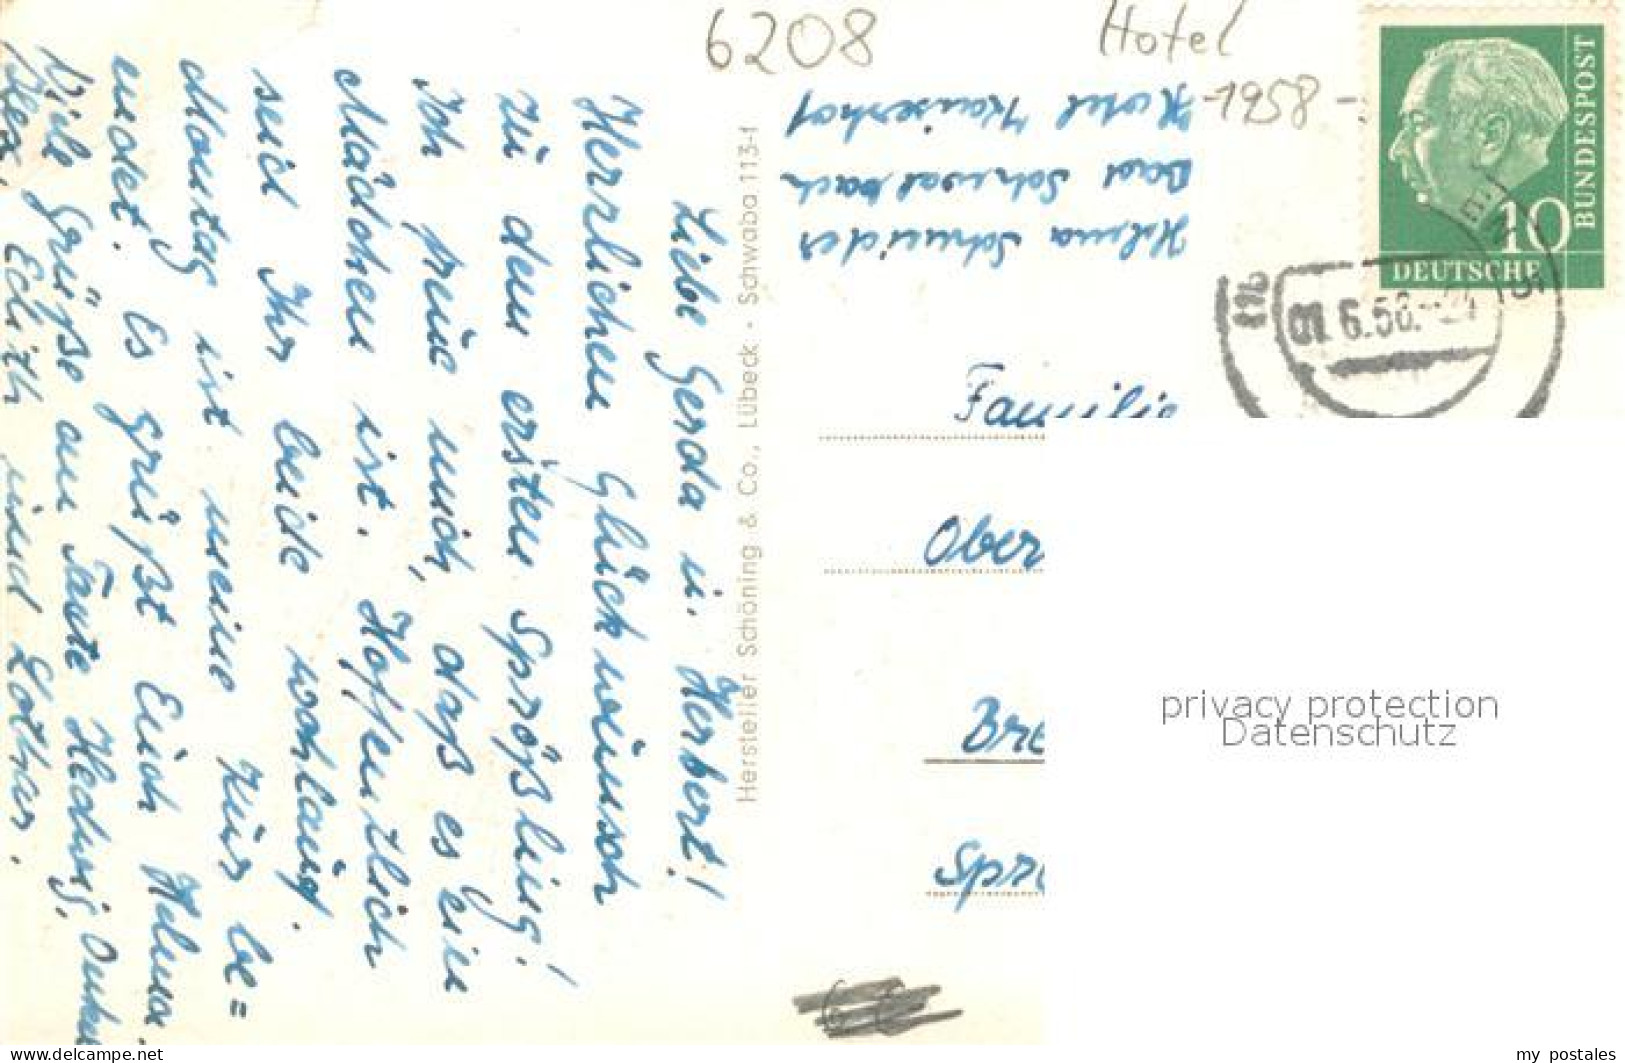 6208
Hotel
-1958-
Hotel Kaiserhof
Bad Schwalbach
Helma Schneider
BUNDESPOST
10
DEUTSCHE
11b
01.6.58.-21
Familie
Ober
Bre
Spre
privacy protection
Datenschutz
Hersteller Schöning & Co., Lübeck - Schwaba 113-1
Liebe Gerda u. Herbert!
Herzlichen Glückwünsch
zu dem ersten Sprößling!
Ich freue mich, daß es ein
Mädchen ist. Hoffentlich
seid Ihr beide wohlauf.
Montag ist meine Kur be=
endet. Es grüßt Euch Helma
Viele Grüße an Tante Hedwig, Onkel
Alex, Edith und Lothar.
my_postales
www.delcampe.net